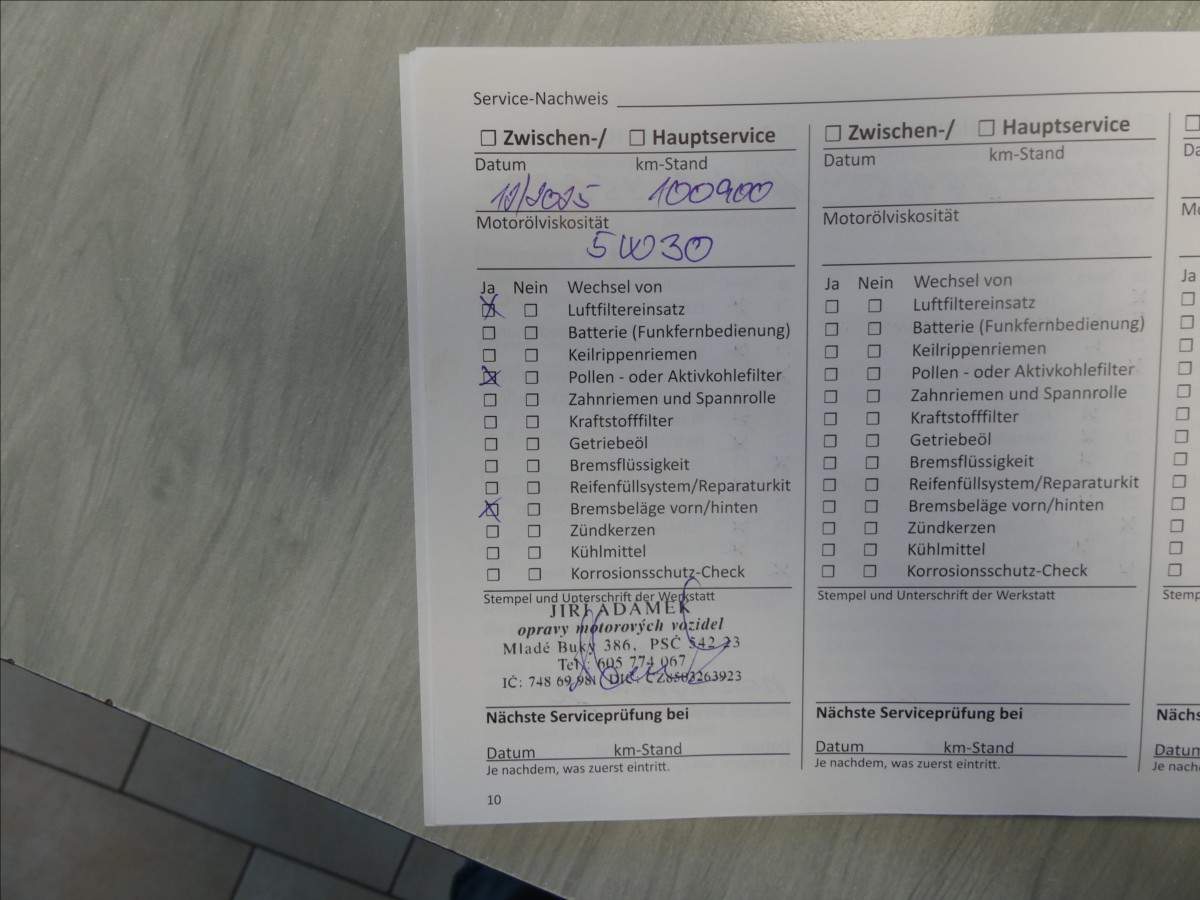 Service-Nachweis
☐ Zwischen-/ ☐ Hauptservice
Datum km-Stand
12/2025 100900
Motorölviskosität
5W30
Ja Nein Wechsel von
☒ ☐ Luftfiltereinsatz
☐ ☐ Batterie (Funkfernbedienung)
☐ ☐ Keilrippenriemen
☒ ☐ Pollen - oder Aktivkohlefilter
☐ ☐ Zahnriemen und Spannrolle
☐ ☐ Kraftstofffilter
☐ ☐ Getriebeöl
☐ ☐ Bremsflüssigkeit
☐ ☐ Reifenfüllsystem/Reparaturkit
☒ ☐ Bremsbeläge vorn/hinten
☐ ☐ Zündkerzen
☐ ☐ Kühlmittel
☐ ☐ Korrosionsschutz-Check
Stempel und Unterschrift der Werkstatt
JIŘÍ ADAMEK
opravy motorových vozidel
Mladé Buky 386, PSČ 542 23
Tel.: 605 774 067
IČ: 748 69 981 DIČ: CZ8503263923
Nächste Serviceprüfung bei
Datum km-Stand
Je nachdem, was zuerst eintritt.
10
☐ Zwischen-/ ☐ Hauptservice
Datum km-Stand
Motorölviskosität
Ja Nein Wechsel von
☐ ☐ Luftfiltereinsatz
☐ ☐ Batterie (Funkfernbedienung)
☐ ☐ Keilrippenriemen
☐ ☐ Pollen - oder Aktivkohlefilter
☐ ☐ Zahnriemen und Spannrolle
☐ ☐ Kraftstofffilter
☐ ☐ Getriebeöl
☐ ☐ Bremsflüssigkeit
☐ ☐ Reifenfüllsystem/Reparaturkit
☐ ☐ Bremsbeläge vorn/hinten
☐ ☐ Zündkerzen
☐ ☐ Kühlmittel
☐ ☐ Korrosionsschutz-Check
Stempel und Unterschrift der Werkstatt
Nächste Serviceprüfung bei
Datum km-Stand
Je nachdem, was zuerst eintritt.
Ja
Nächs
Datum
Je nach